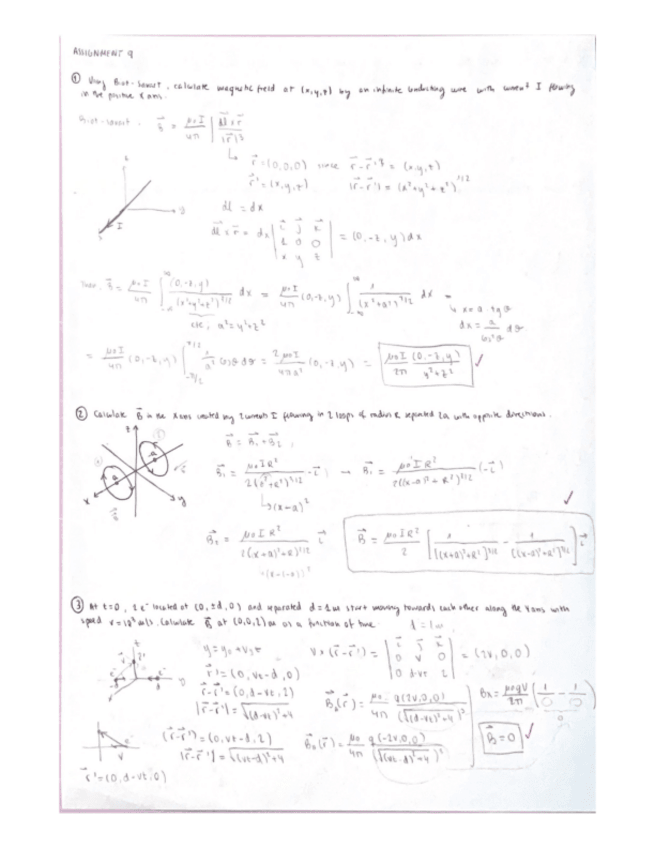 ASSIGNMENT 9
① Using Biot-Savart, calculate magnetic field at (x,y,z) by an infinite conducting wire with current I flowing
in the positive x axis.
Biot-Savart. B⃗ = μ₀I/4π ∫ dl⃗×r⃗/|r⃗|³
r⃗ = (0,0,0) since r⃗-r⃗' = (x,y,z)
r⃗' = (x,y,z) |r⃗-r⃗'| = (x²+y²+z²)^1/2
dl = dx
dl⃗×r⃗ = dx | i⃗ j⃗ k⃗ ; 1 0 0 ; x y z | = (0,-z,y)dx
Then, B⃗ = μ₀I/4π ∫ (0,-z,y)/(x²+y²+z²)^3/2 dx = μ₀I/4π (0,-z,y) ∫ 1/(x²+a²)^3/2 dx =
cte, a²=y²+z²
x = a·tgθ
dx = a/cos²θ dθ
= μ₀I/4π (0,-z,y) ∫ 1/a² cosθ dθ = 2μ₀I/4πa² (0,-z,y) = μ₀I/2π (0,-z,y)/y²+z² ✓
② Calculate B⃗ in the x axis created by 2 currents I flowing in 2 loops of radius R separated 2a with opposite directions.
B⃗ = B⃗₁+B⃗₂
z
x
y
B⃗₁ = μ₀IR²/2(x²+R²)^3/2 (-i⃗) → B⃗₁ = μ₀IR²/2((x-a)²+R²)^3/2 (-i⃗)
(x-a)²
✓
B⃗₂ = μ₀IR²/2((x+a)²+R²)^3/2 i⃗
B⃗ = μ₀IR²/2 [1/[(x+a)²+R²]^3/2 - 1/[(x-a)²+R²]^3/2] i⃗
③ At t=0, 2 e⁻ located at (0,±d,0) and separated d=1m start moving towards each other along the y axis with
speed v=10³ m/s. Calculate B⃗ at (0,0,2)m as a function of time.
d = 1m
r⃗' = (0, vt-d, 0)
r⃗-r⃗' = (0, d-vt, 2)
|r⃗-r⃗'| = √(d-vt)²+4
v×(r⃗-r⃗') = | i⃗ j⃗ k⃗ ; 0 v 0 ; 0 d-vt 2 | = (2v,0,0)
(r⃗-r⃗') = (0, vt-d, 2)
|r⃗-r⃗'| = √(vt-d)²+4
B⃗=0 ✓
r⃗' = (0, d-vt, 0)